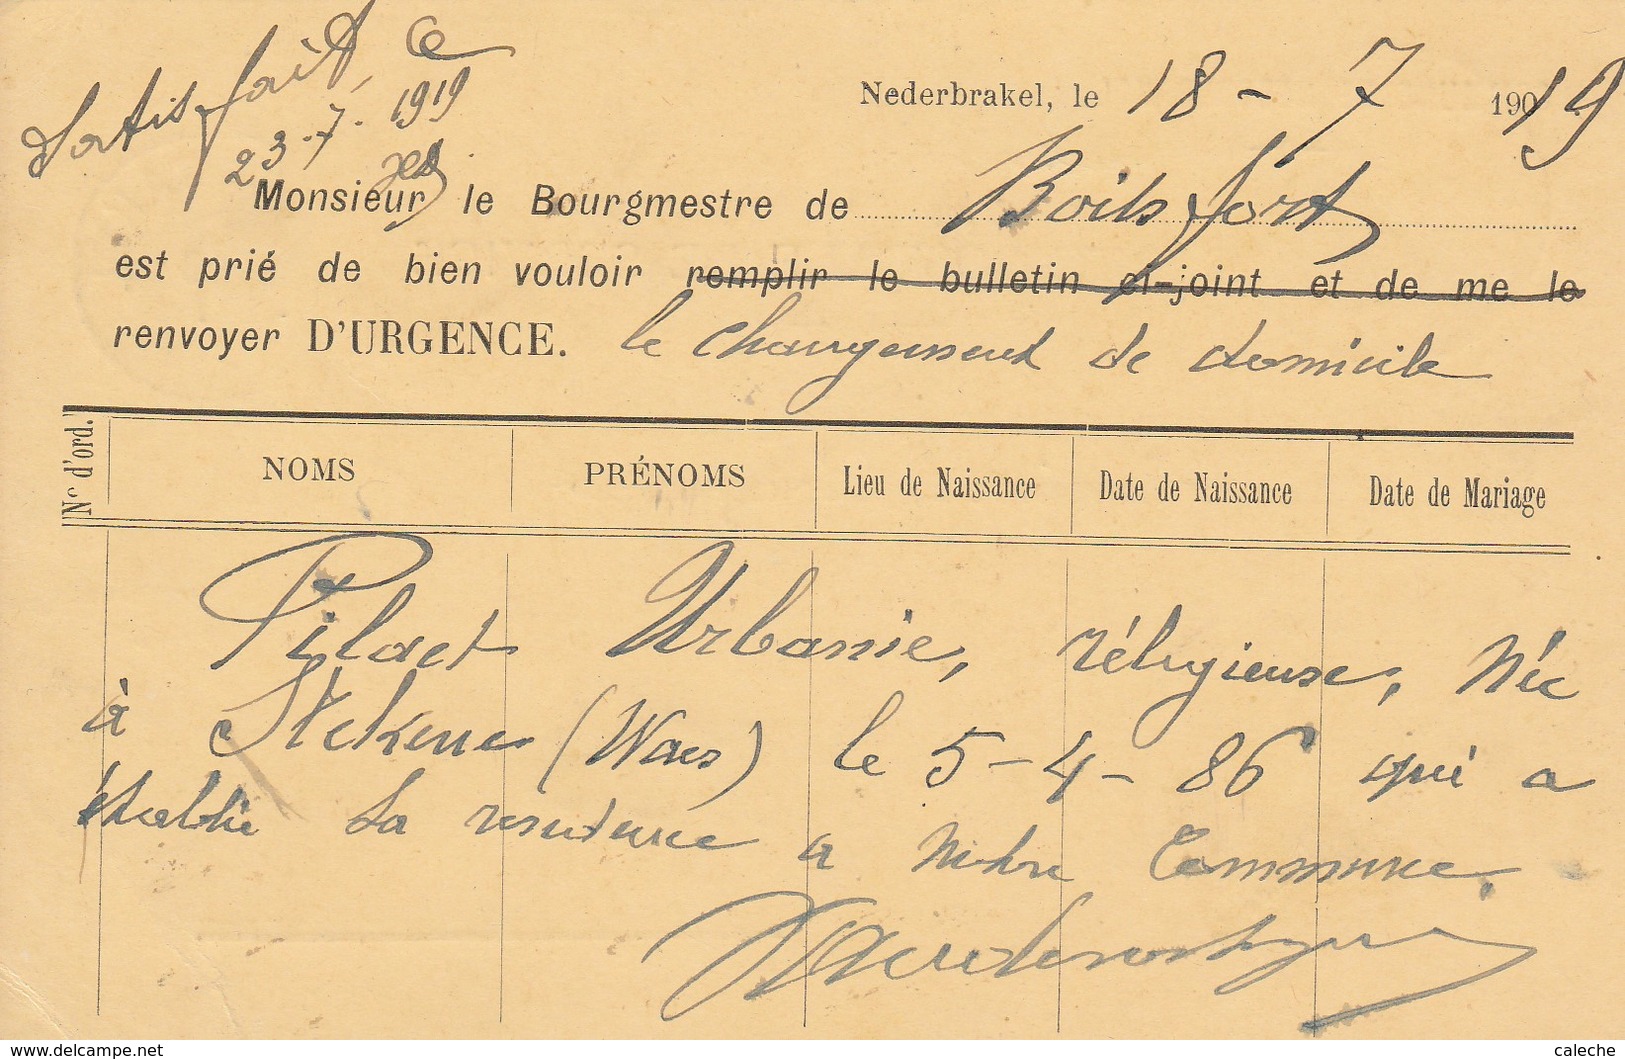 Satisfait, ce
23.7.1919
Nederbrakel, le 18 - 7 1919
Monsieur le Bourgmestre de Boitsfort
est prié de bien vouloir remplir le bulletin ci-joint et de me le
renvoyer D'URGENCE. le changement de domicile
Nº d'ord. NOMS PRÉNOMS Lieu de Naissance Date de Naissance Date de Mariage
Pilaet Urbanie, réligieuse, Née
à Stekene (Waes) le 5-4-86 qui a
établie sa residence a Notre Commune.
© www.delcampe.net
caleche